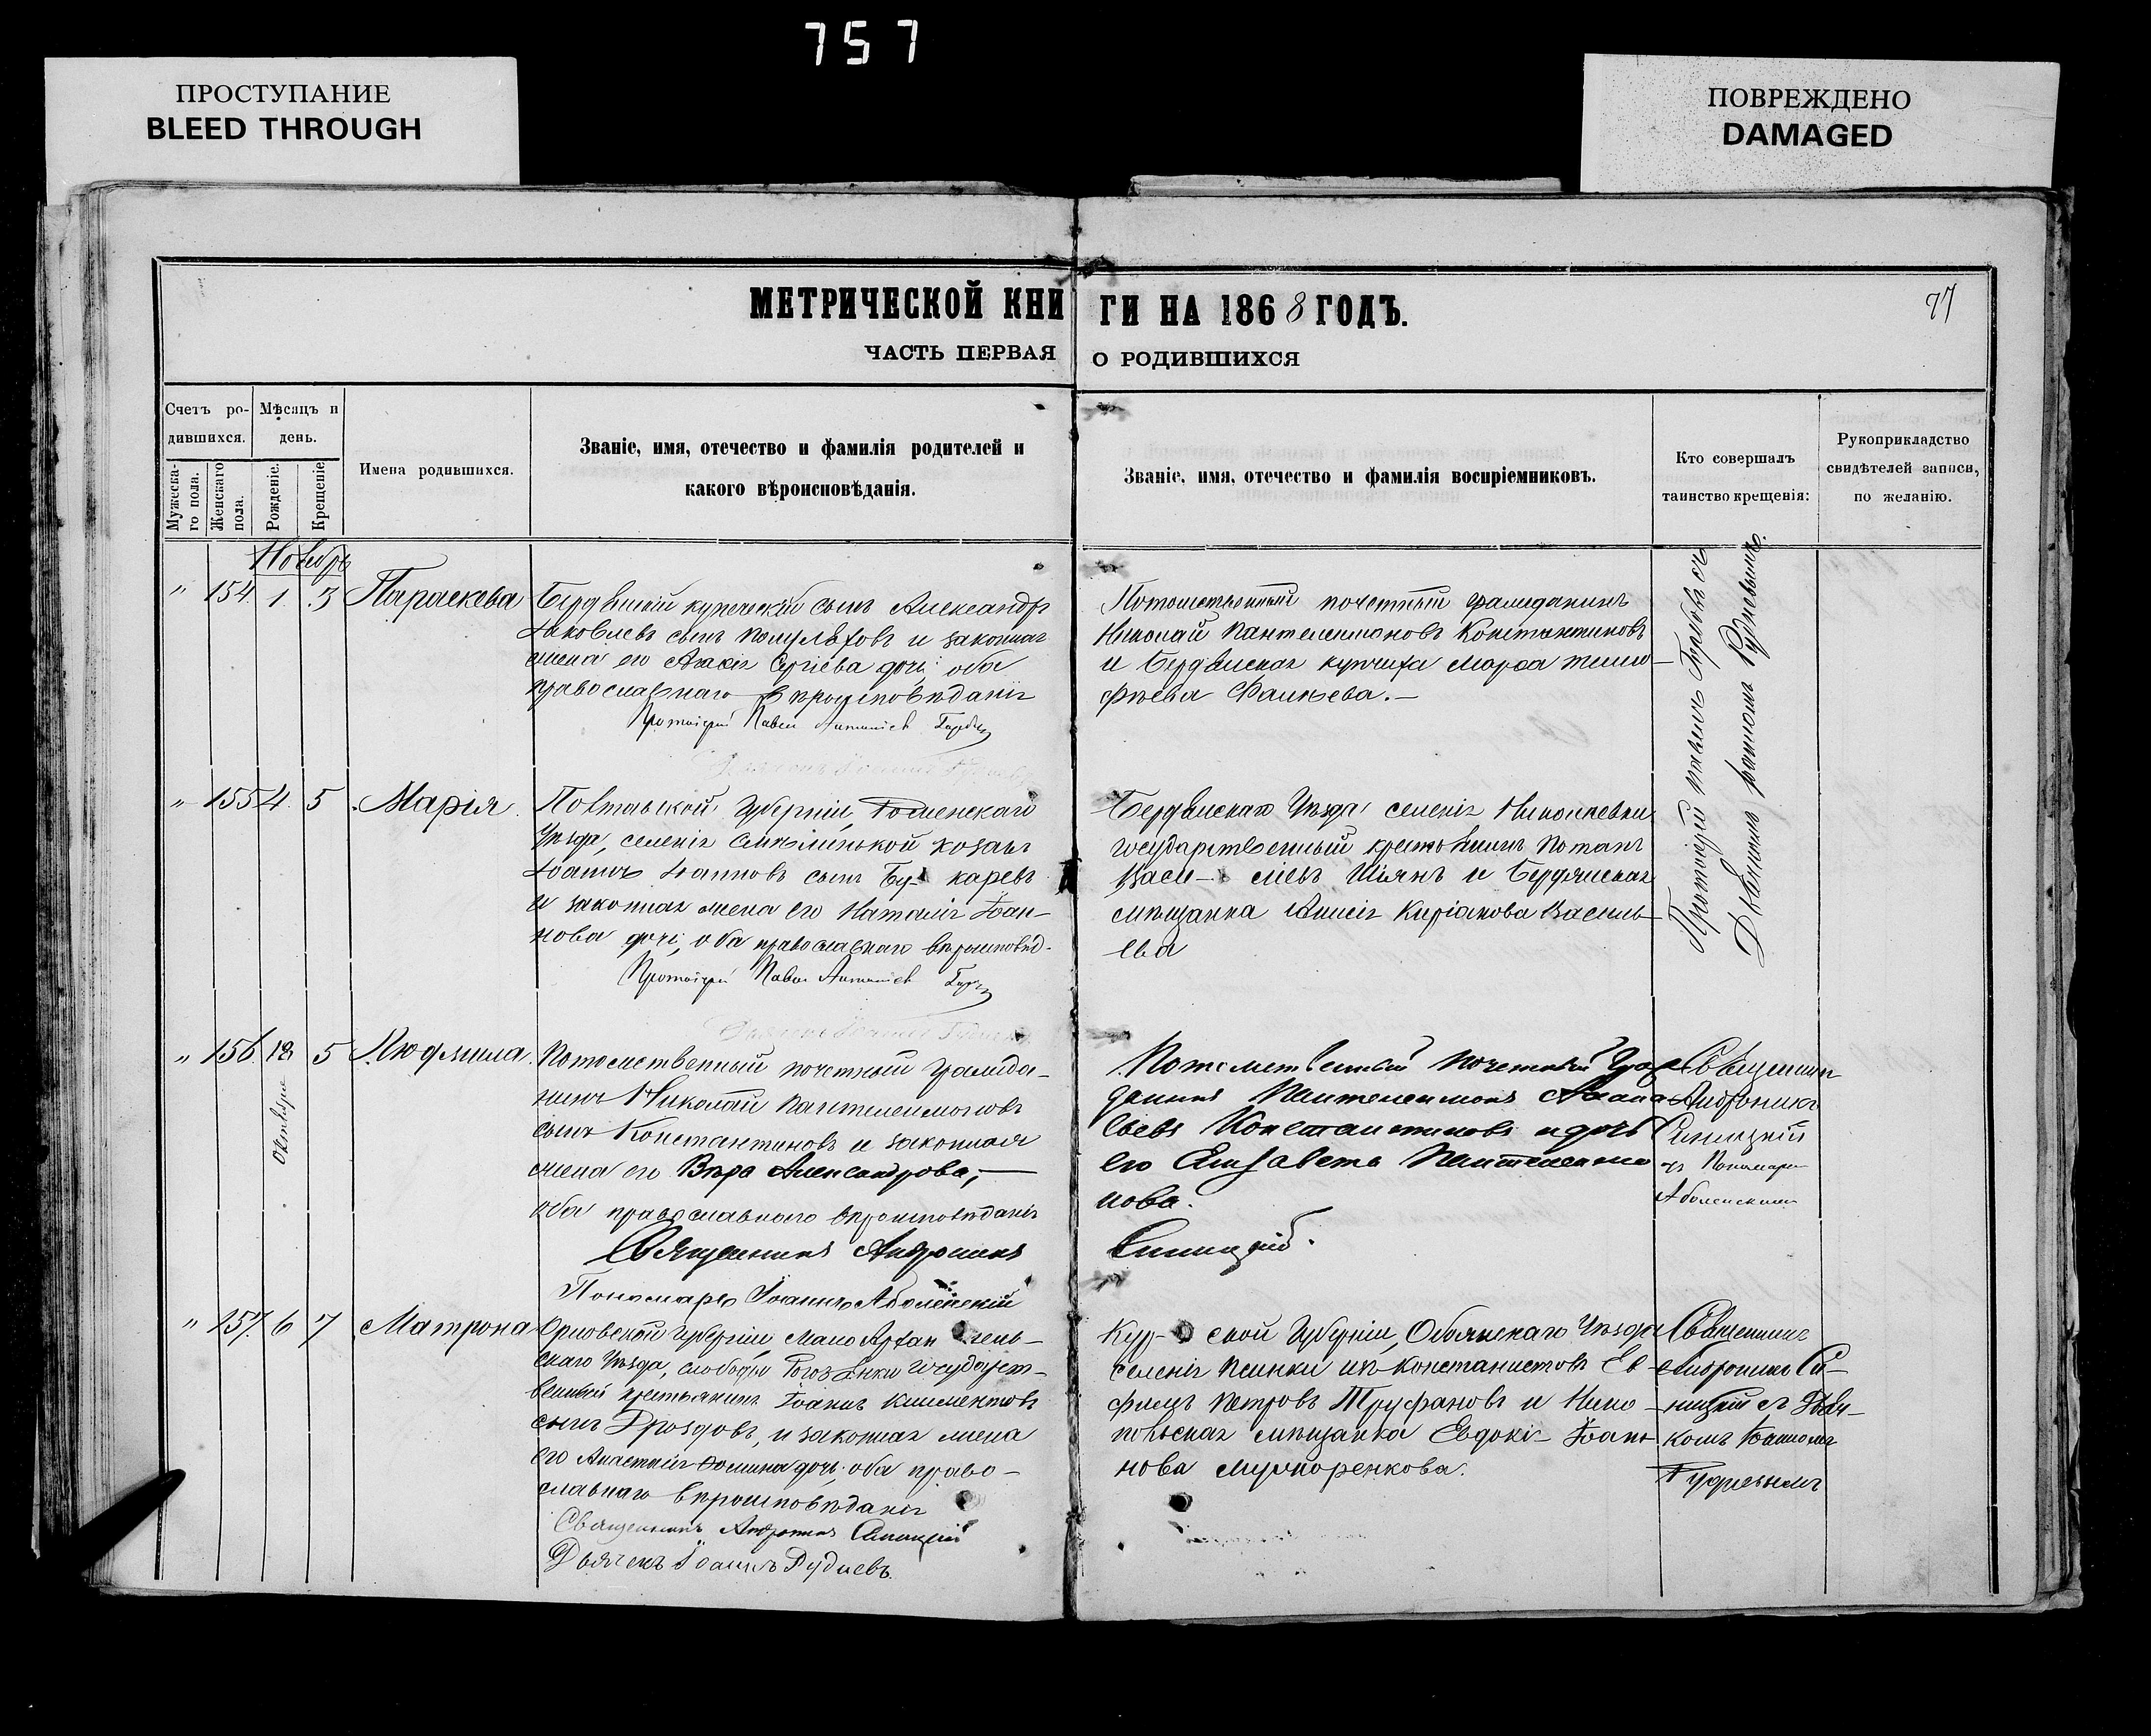 757
ПРОСТУПАНИЕ
BLEED THROUGH
ПОВРЕЖДЕНО
DAMAGED
МЕТРИЧЕСКОЙ КНИ ГИ НА 1868 ГОДЪ.
77
ЧАСТЬ ПЕРВАЯ О РОДИВШИХСЯ
Счетъ ро-
дившихся.
Мужеска-
го пола.
Женскаго
пола.
Мѣсяцъ и
день.
Рожденіе.
Крещеніе
Имена родившихся.
Званіе, имя, отечество и фамилія родителей и
какого вѣроисповѣданія.
Званіе, имя, отечество и фамилія воспріемниковъ.
Кто совершалъ
таинство крещенія:
Рукоприкладство
свидѣтелей записи,
по желанію.
Ноябрь
" 154. 1. 3 Параскева
Бердянскій купеческій сынъ Александръ
Яковлевъ сынъ и законная
жена его Сергіева дочь; оба
православнаго вѣроисповѣданія
Протоіерей Павелъ
Потомственный почетный гражданинъ
Николай Пантелеимоновъ Константиновъ
и Бердянская купчиха Марфа Тимо-
фѣева
Протоіерей Павелъ съ
Дьякономъ Іоанномъ Рудневымъ.
" 155 4. 5 Марія.
Полтавской Губерніи, Роменскаго
Уѣзда, селенія козакъ
Іоаннъ Іоанновъ сынъ Бу- каревъ
и законная жена его Наталія Іоан-
нова дочь, оба православнаго вѣроисповѣд.
Протоіерей Павелъ
Бердянскаго Уѣзда селенія Николаевки
государственный крестьянинъ Потапъ
Васи- льевъ Шіянъ и Бердянская
мѣщанка Киріакова Василь-
ева
" 156 18 5 Людмила.
Октября
Потомственный почетный гражда-
нинъ Николай Пантелеимоновъ
сынъ Константиновъ и законная
жена его Вѣра Александрова, —
оба православнаго вѣроисповѣданія
Священникъ Андроникъ Синицкій.
Пономарь Іоаннъ Аболенскій
Потомственный Почетный Граж-
данинъ Пантелеимонъ Афана-
сьевъ Константиновъ и дочь
его Елизавета Пантелеимо
нова.
Священникъ
Андроникъ
Синицкій
съ Пономаремъ
Аболенскимъ
" 157. 6 7 Матрона
Орловской Губерніи, Мало Архан гель-
скаго Уѣзда, слободы государст-
венный крестьянинъ Іоаннъ Климентовъ
сынъ Дроздовъ, и законная жена
его Анастасія Фомина дочь; оба право-
славнаго вѣроисповѣданія
Священникъ Андроникъ Синицкій
Дьячекъ Іоаннъ Рудневъ.
Кур- ской Губерніи, Обоянскаго Уѣзда
селенія Пѣнки Ев-
фимъ Петровъ Труфановъ и Нико-
польская мѣщанка Евдокі- Іоан-
нова
Священникъ
Андроникъ Си-
ницкій съ Дьяч-
комъ Іоанномъ
Рудневымъ